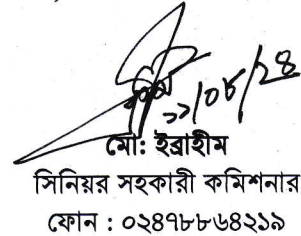 ২২/০৮/২৪
মো: ইব্রাহীম
সিনিয়র সহকারী কমিশনার
ফোন : ০২৪৭৮৮৬৪২১৯